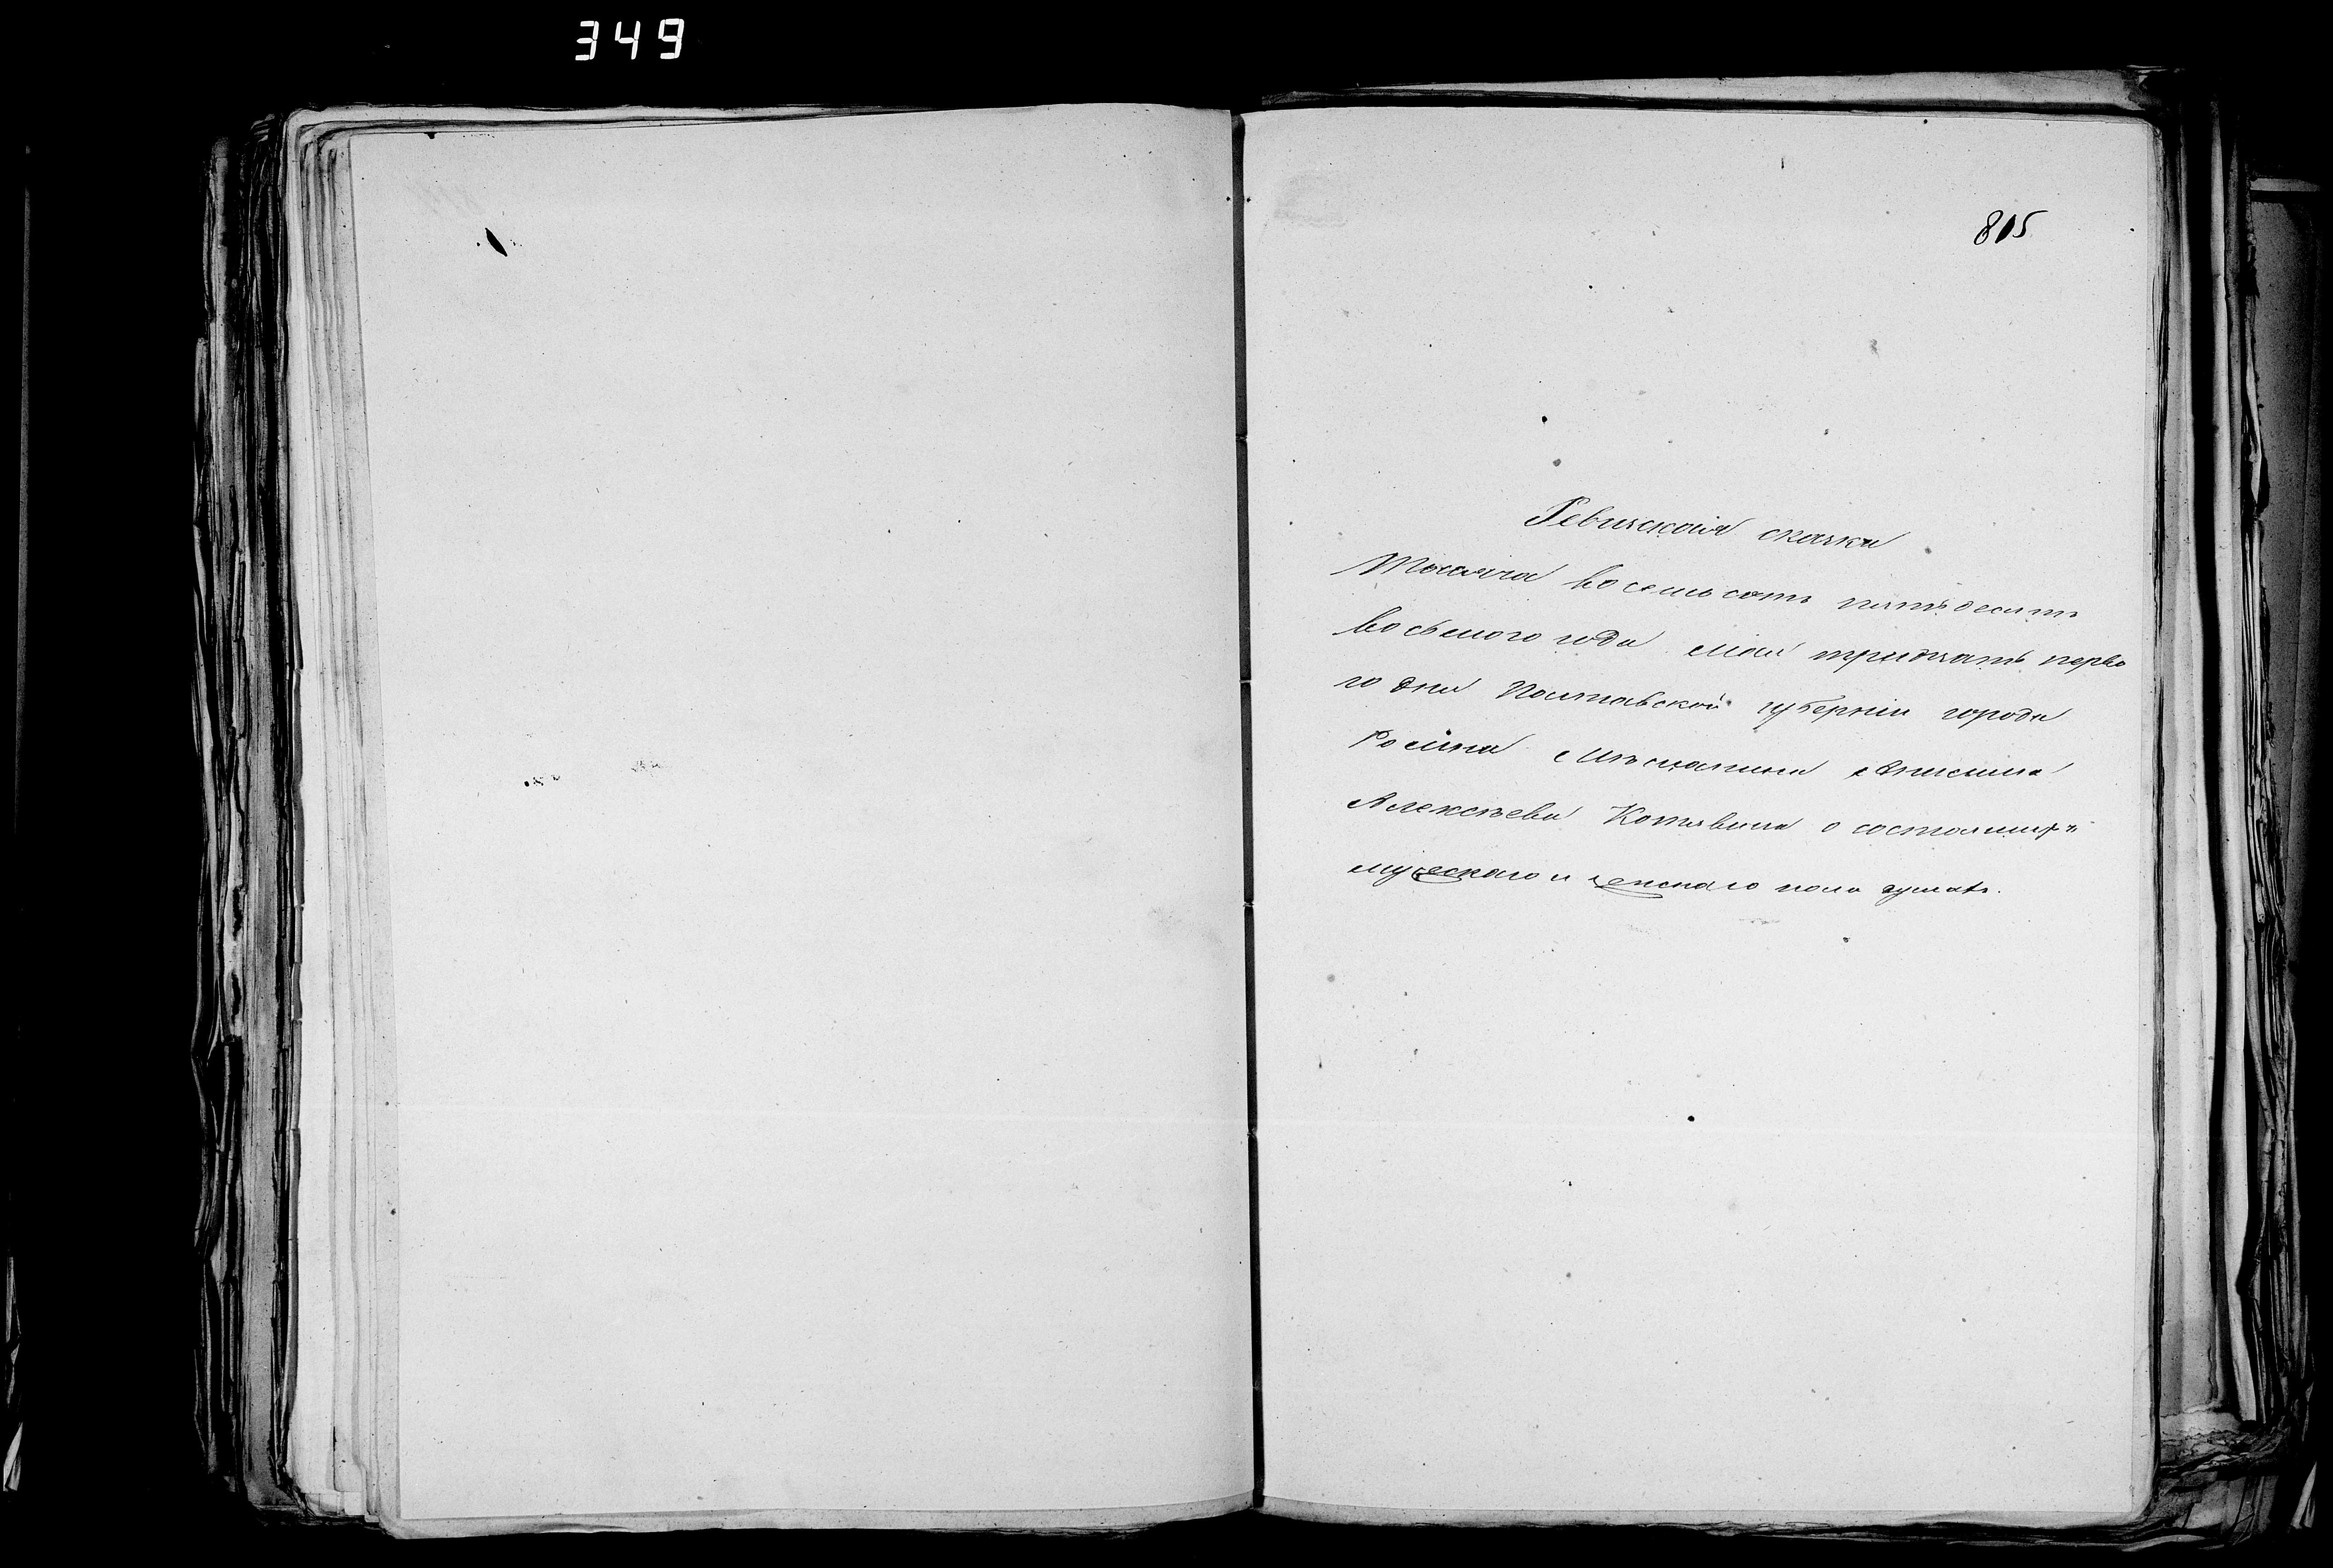 349
815
Ревизская сказка
Тысяча восемьсотъ пятьдесятъ
восьмого года мая тридцать перво
го дня Полтавской губерніи города
Ромна мѣщанина Анисима
Алексѣева о состоящихъ
мужескаго и женскаго пола душахъ.